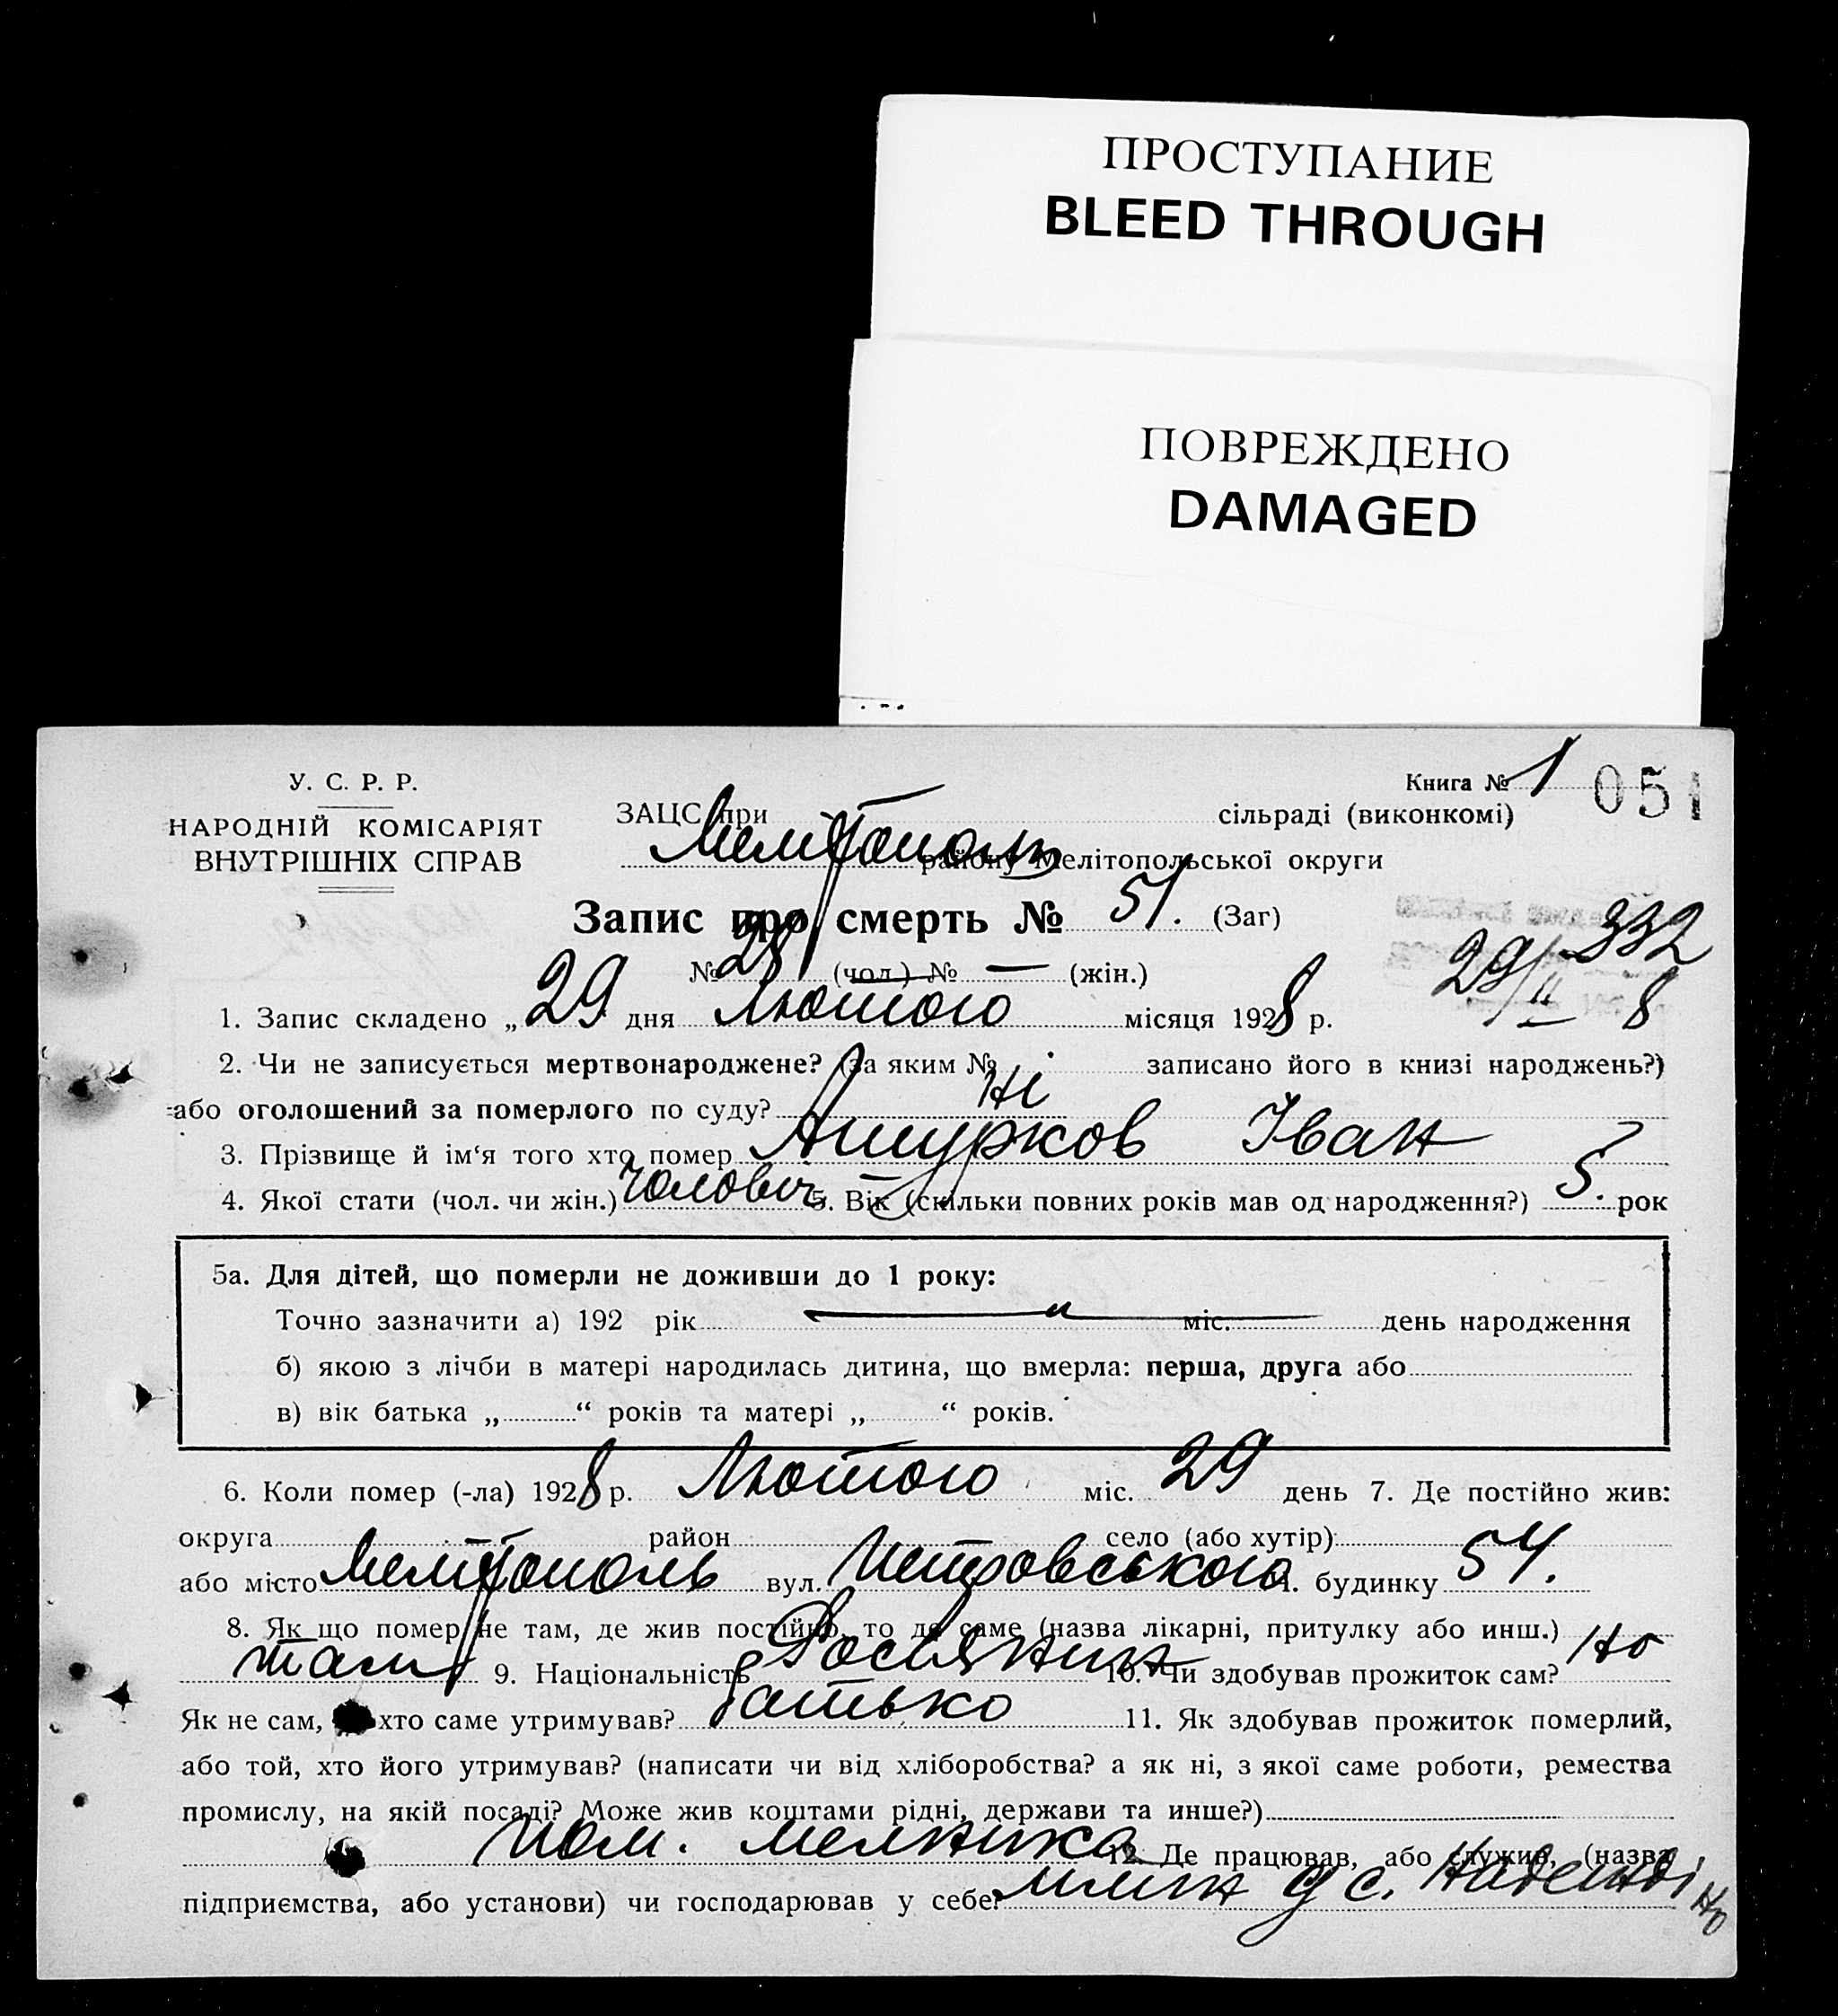 ПРОСТУПАНИЕ
BLEED THROUGH
ПОВРЕЖДЕНО
DAMAGED
У. С. Р. Р.
НАРОДНІЙ КОМІСАРІЯТ
ВНУТРІШНІХ СПРАВ
Книга № 1 051
ЗАЦС при сільраді (виконкомі)
Мелітополь району Мелітопольської округи
Запис про смерть № 51. (Заг)
332
№ 28 (чол.) № — (жін.)
29/II 8
1. Запис складено „29 дня Лютого місяця 1928 р.
2. Чи не записується мертвонароджене? (за яким № записано його в книзі народжень?)
або оголошений за померлого по суду? Ні
3. Прізвище й ім‘я того хто помер Ашурков Іван
4. Якої стати (чол. чи жін.) Чоловіч 5. Вік (скільки повних років мав од народження?) 5. рок
5а. Для дітей, що померли не доживши до 1 року:
Точно зазначити а) 192 рік міс. день народження
б) якою з лічби в матері народилась дитина, що вмерла: перша, друга або
в) вік батька „ “ років та матері „ “ років.
6. Коли помер (-ла) 1928 р. Лютого міс. 29 день 7. Де постійно жив:
округа район село (або хутір)
або місто Мелітополь вул. Петровського ч. будинку 54.
8. Як що помер не там, де жив постійно, то де саме (назва лікарні, притулку або инш.)
там 9. Національність Росіянин 10. Чи здобував прожиток сам? Но
Як не сам, хто саме утримував? батько 11. Як здобував прожиток померлий,
або той, хто його утримував? (написати чи від хліборобства? а як ні, з якої саме роботи, ремества
промислу, на якій посаді? Може жив коштами рідні, держави та инше?)
пом. мелника 12. Де працював, або служив, (назва
підприємства, або установи) чи господарював у себе? млин с.